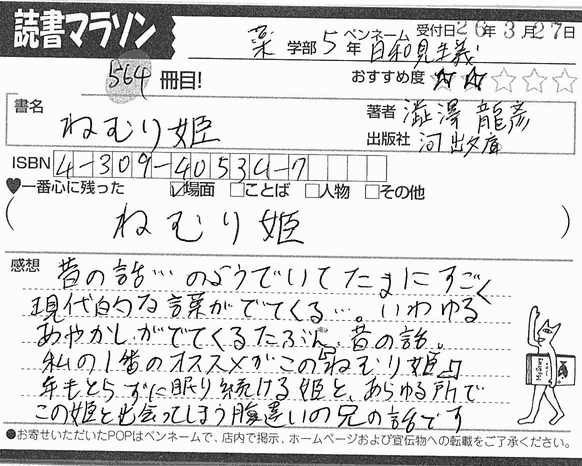 読書マラソン
受付日26年3月27日
薬 学部 5年 ペンネーム 日和見主義
564 冊目!
おすすめ度 ☆☆☆☆☆
書名 ねむり姫
著者 澁澤 龍彦
出版社 河出文庫
ISBN 4-309-40534-7
♥一番心に残った ☑場面 □ことば □人物 □その他
( ねむり姫 )
感想
昔の話… のようでいてたまにすごく
現代的な言葉がでてくる…。いわゆる
あやかしがでてくるたぶん、昔の話。
私の1番のオススメがこの『ねむり姫』
年もとらずに眠り続ける姫と、あらゆる所で
この姫と出会ってしまう腹違いの兄の話です
●お寄せいただいたPOPはペンネームで、店内で掲示、ホームページおよび宣伝物への転載をご了承ください。